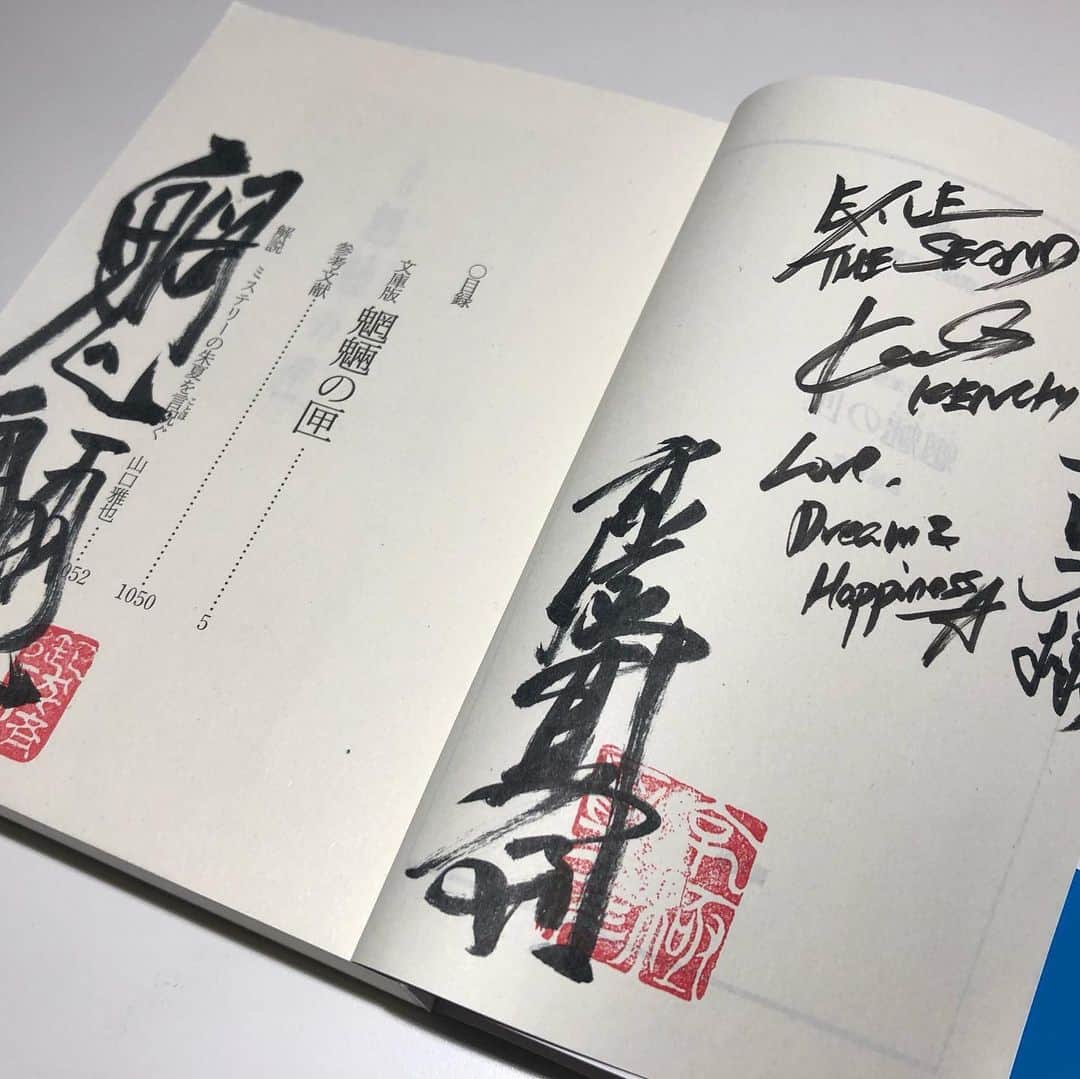 EXILE
THE SECOND
KENCHI
Love,
Dream &
Happiness
京極夏彦
〇目録
文庫版 魍魎の匣 5
参考文献 1050
解説 ミステリーの朱夏を言祝ぐ 山口雅也 052
魍魎